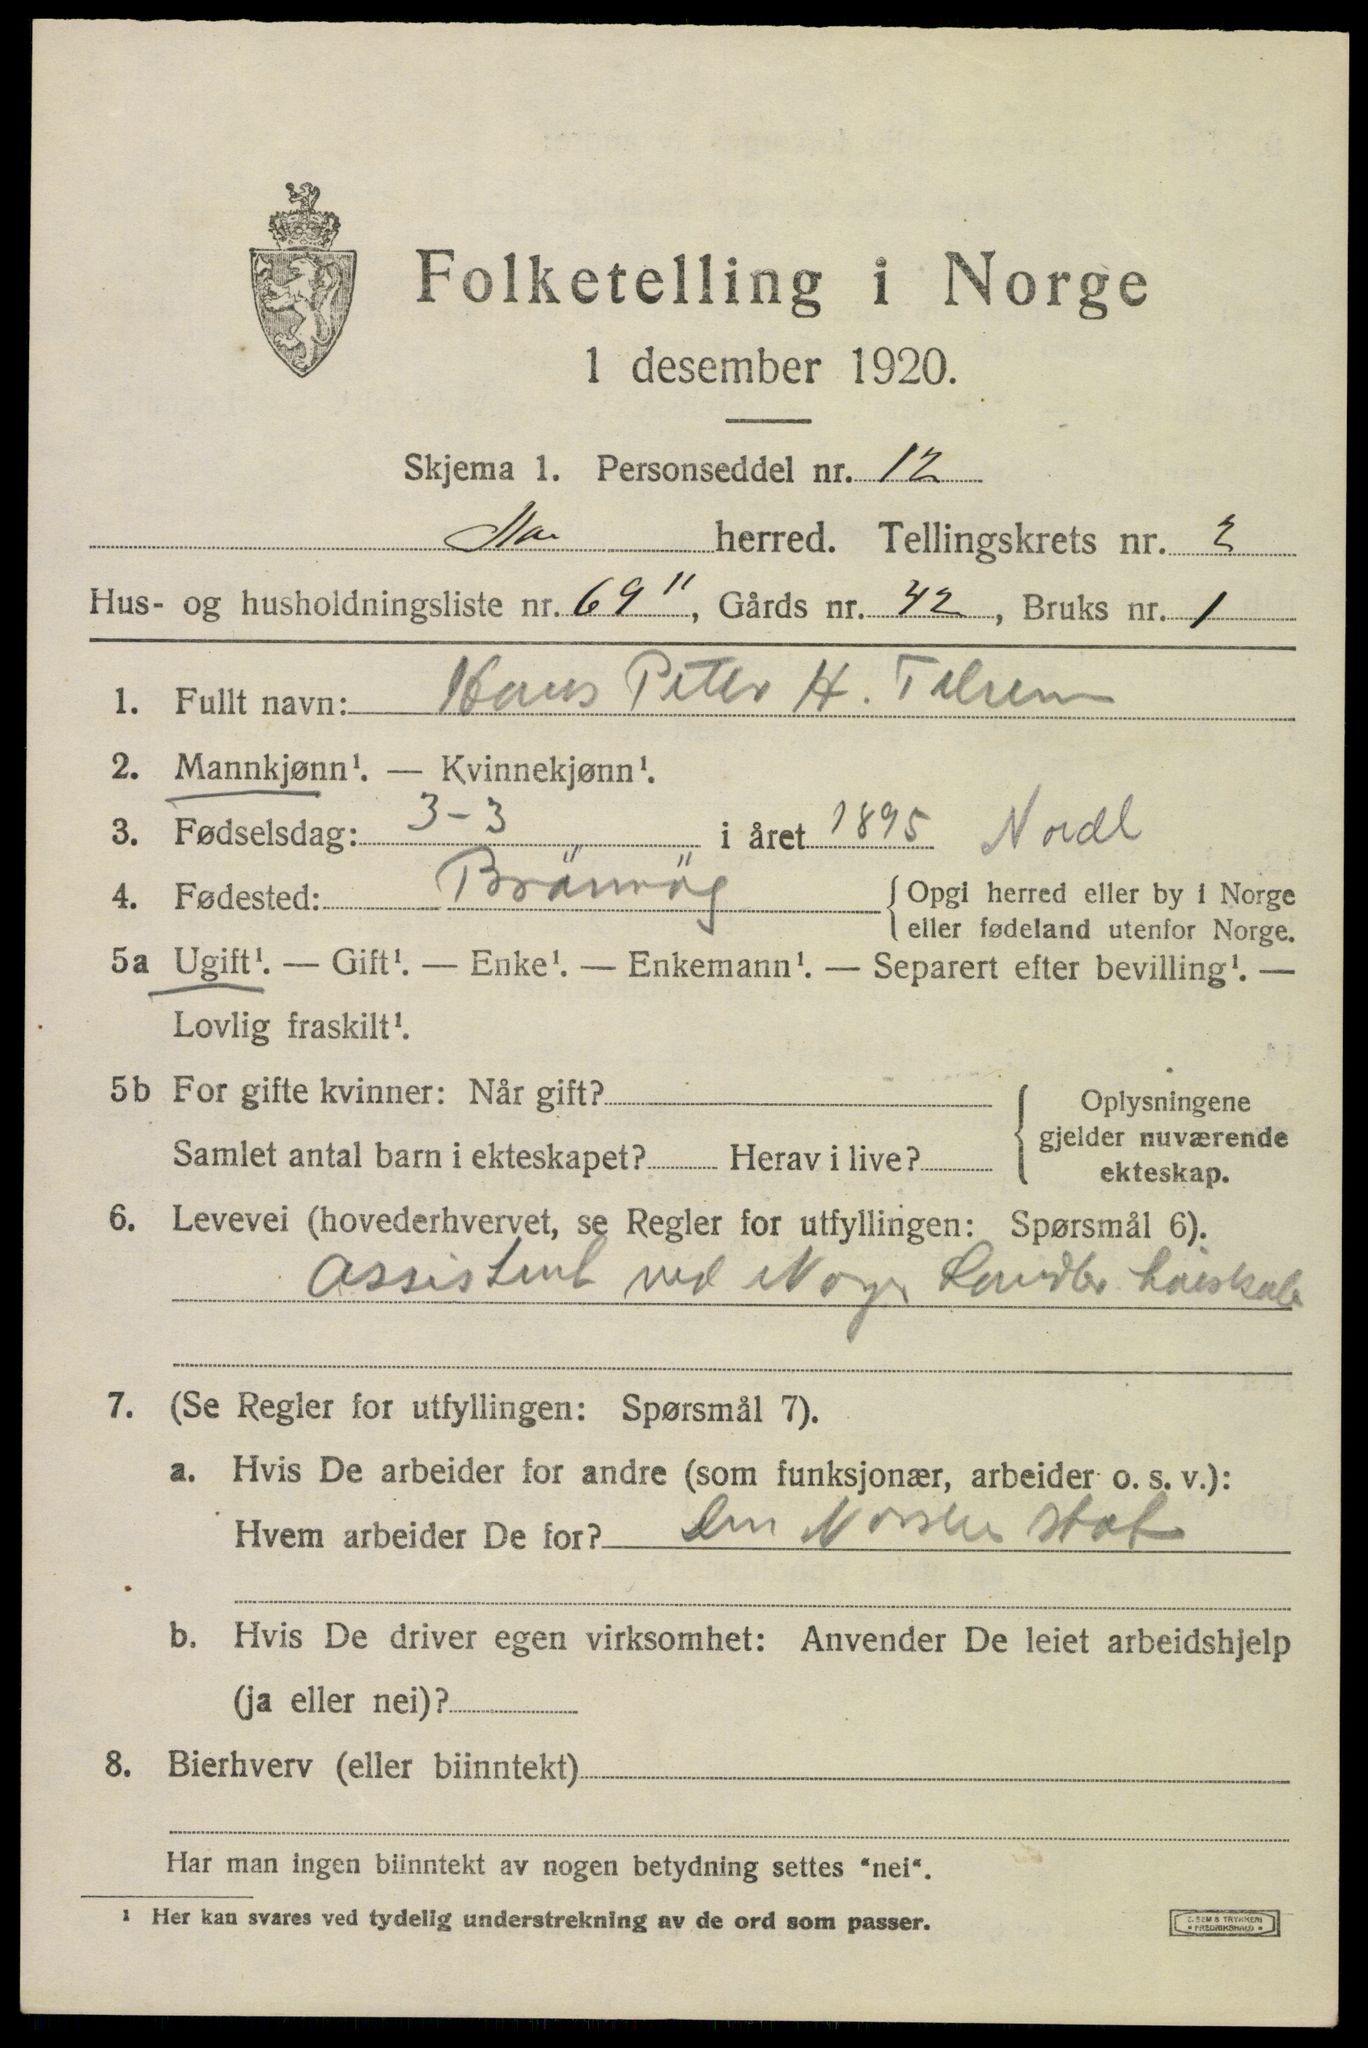 Folketelling i Norge
1 desember 1920.
Skjema 1. Personseddel nr. 12
herred. Tellingskrets nr. 2
Hus- og husholdningsliste nr. 69 11, Gårds nr. 42, Bruks nr. 1
1. Fullt navn: Hans Peter H.
2. Mannkjønn¹. — Kvinnekjønn¹.
3. Fødselsdag: 3-3 i året 1895 Nordl
4. Fødested: Brönnög { Opgi herred eller by i Norge
eller fødeland utenfor Norge.
5a Ugift¹. — Gift¹. — Enke¹. — Enkemann¹. — Separert efter bevilling¹. —
Lovlig fraskilt¹.
5b For gifte kvinner: Når gift?
Samlet antal barn i ekteskapet? Herav i live?
{ Oplysningene
gjelder nuværende
ekteskap.
6. Levevei (hovederhvervet, se Regler for utfyllingen: Spørsmål 6).
Assistent ved Norges Landbr höiskole
7. (Se Regler for utfyllingen: Spørsmål 7).
a. Hvis De arbeider for andre (som funksjonær, arbeider o. s. v.):
Hvem arbeider De for? Den Norske stat
b. Hvis De driver egen virksomhet: Anvender De leiet arbeidshjelp
(ja eller nei)?
8. Bierhverv (eller biinntekt)
Har man ingen biinntekt av nogen betydning settes "nei".
¹ Her kan svares ved tydelig understrekning av de ord som passer.
E. SEM'S TRYKKERI
FREDRIKSHALD